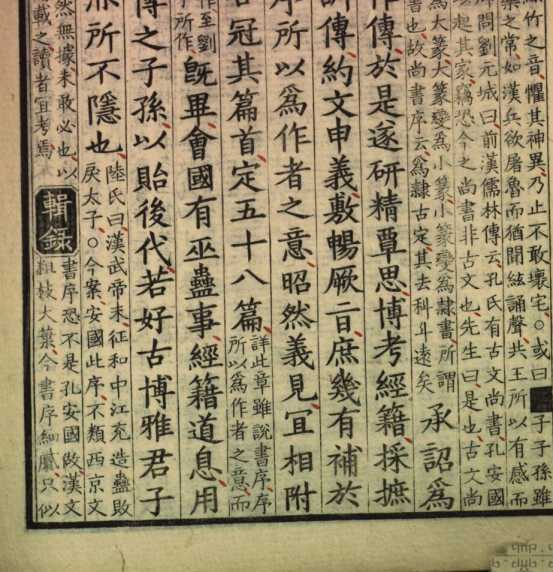 絲竹之音懼其神異乃止不敢壞宅○或曰
子子孫
樂之常如漢兵欲屠魯而猶聞絃誦聲共王所以有感而
問劉元城曰前漢儒林傳云孔氏有古文尚書孔安國
以起其家竊恐今之尚書非古文也先生曰是也古文尚
為大篆大篆變為小篆小篆變為隸書所謂
書也故尚書序云為隸古定其去科斗遠矣
承詔為
作傳於是遂研精覃思博考經籍採摭
訓傳約文申義敷暢厥旨庶幾有補於
序所以為作者之意昭然義見宜相附
各冠其篇首定五十八篇
詳此章雖說書序序
所以為作者之意而
作至劉
所作
旣畢會國有巫蠱事經籍道息用
傳之子孫以貽後代若好古博雅君子
所不隱也
陸氏曰漢武帝末征和中江充造蠱敗
戾太子○今案安國此序不類西京文
然無據未敢必也以
載之讀者宜考焉
輯錄
書序恐不是孔安國做漢文
麤枝大葉今書序細膩只似